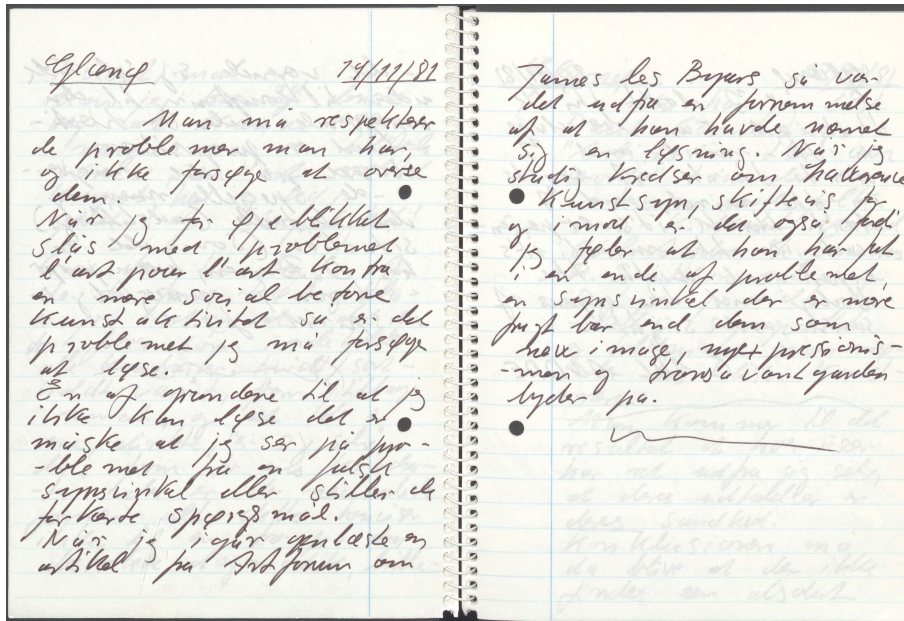 Glänö 19/11/81
Man må respekterer
de problemer man har,
og ikke forsøge at overse
dem.
Når jeg for øjeblikket
slås med problemet
l'art pour l'art kontra
en mere social betone
kunstaktivitet så er det
problemet jeg må forsøge
at løse.
En af grundene til at jeg
ikke kan løse det er
måske at jeg ser på pro-
-blemet fra en falsk
synsvinkel eller stiller de
forkerte spørgsmål.
Når jeg igår genlæste en
artikel fra Artforum om
James les Byars så var
det udfra en fornemmelse
af at han havde nærmet
sig en løsning. Når jeg
stadig kredser om
kunstsyn, skiftevis for
og imod er det også fordi
jeg føler at han har fat
i en ende af problemet,
en synsvinkel der er mere
frugtbar end dem som
new image, nyexpressionis-
-men og transavantgarden
byder på.